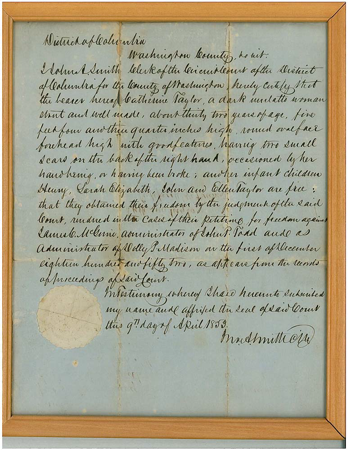 District of Columbia
Washington County, to wit.
I John A Smith Clerk of the Circuit Court of the District
of Columbia for the County of Washington, hereby certify that
the bearer hereof Catherine Taylor, a dark mulatto woman
short and well made, about thirty two years of age, five
feet four and three quarter inches high, round oval face
forehead high with good features, having two small
scars on the back of the right hand, occasioned by her
hand being, or having been broke; and her infant children
Henry, Sarah Elizabeth, John and Ellen Taylor are free;
that they obtained their freedom by the judgment of the said
Court, rendered in the Case of their Petition for freedom against
James C. McGuire, administrator of John P Todd and as
Administrator of Dolly P Madison on the first of December
eighteen hundred and fifty two, as appears from the records
of proceedings of said Court.
In testimony whereof I have hereunto subscribed
my name and affixed the seal of said Court
this 9th day of April 1853.
Jno A Smith Clk